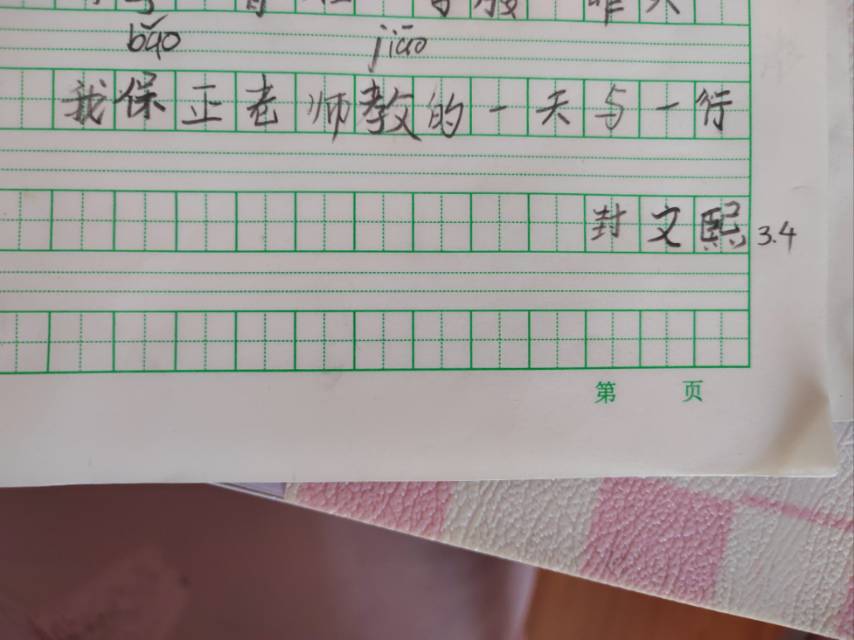 bǎo jiāo
我保正老师教的一天与一行
封文熙 3.4
第 页